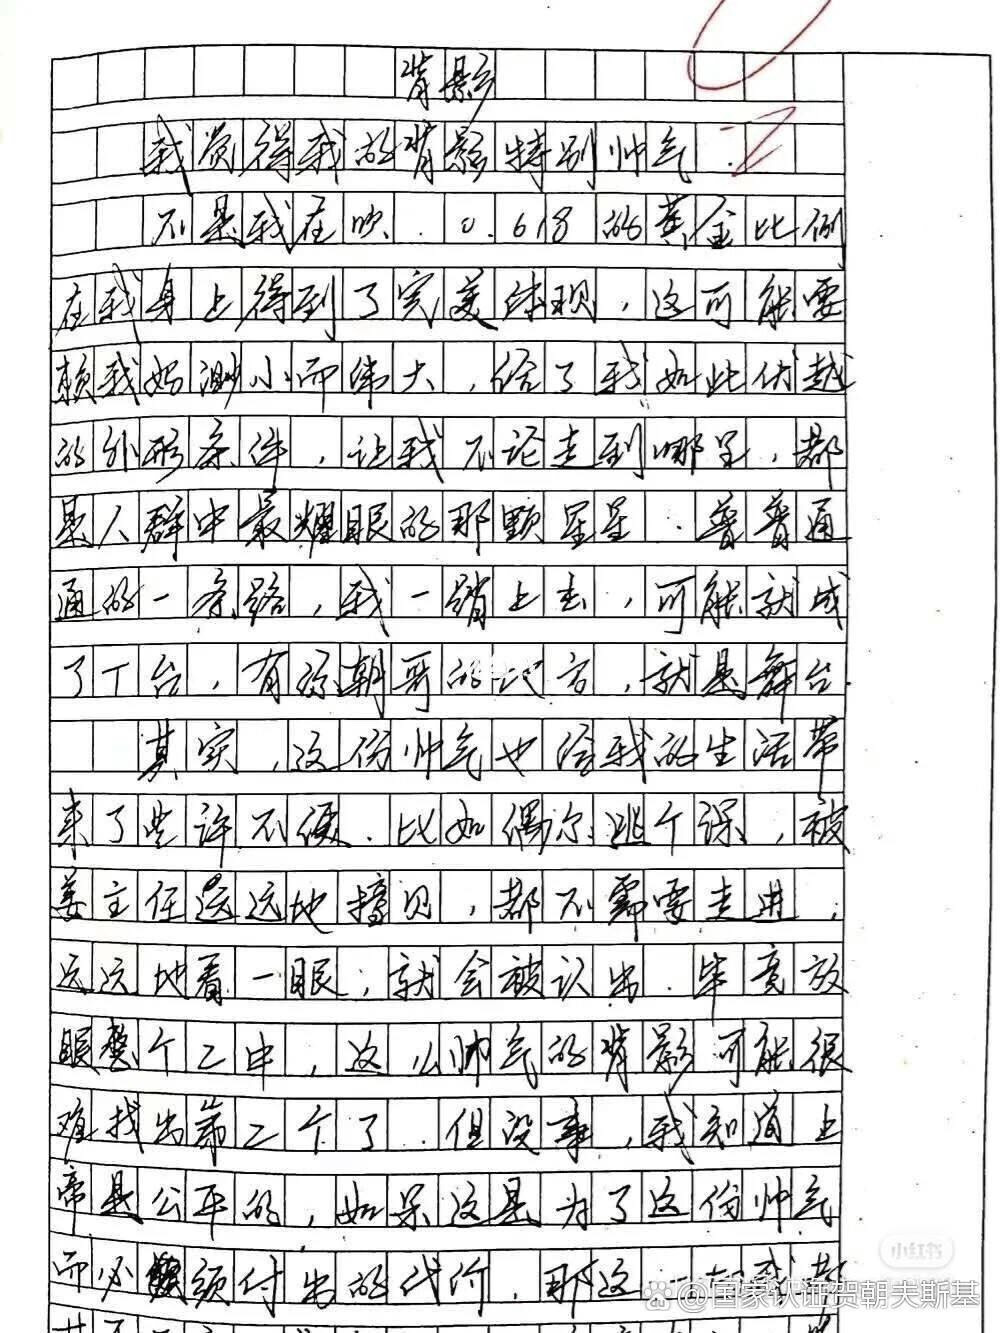 背影
我觉得我的背影特别帅气.
不是我在吹.0.618的黄金比例
在我身上得到了完美体现,这可能要
赖我妈渺小而伟大,给了我如此优越
的外形条件,让我不论走到哪里,都
是人群中最耀眼的那颗星星.普普通
通的一条路,我一踏上去,可能就成
了T台,有你朝哥的地方,就是舞台.
其实,这份帅气也给我的生活带
来了些许不便.比如偶尔逃个课,被
姜主任远远地撞见,都不需要走进,
远远地看一眼,就会被认出.毕竟放
眼整个二中,这么帅气的背影可能很
难找出第二个了.但没事,我知道上
帝是公平的,如果这是为了这份帅气
而必须付出的代价,那这一切我都
小红书
国家认证贺朝夫斯基